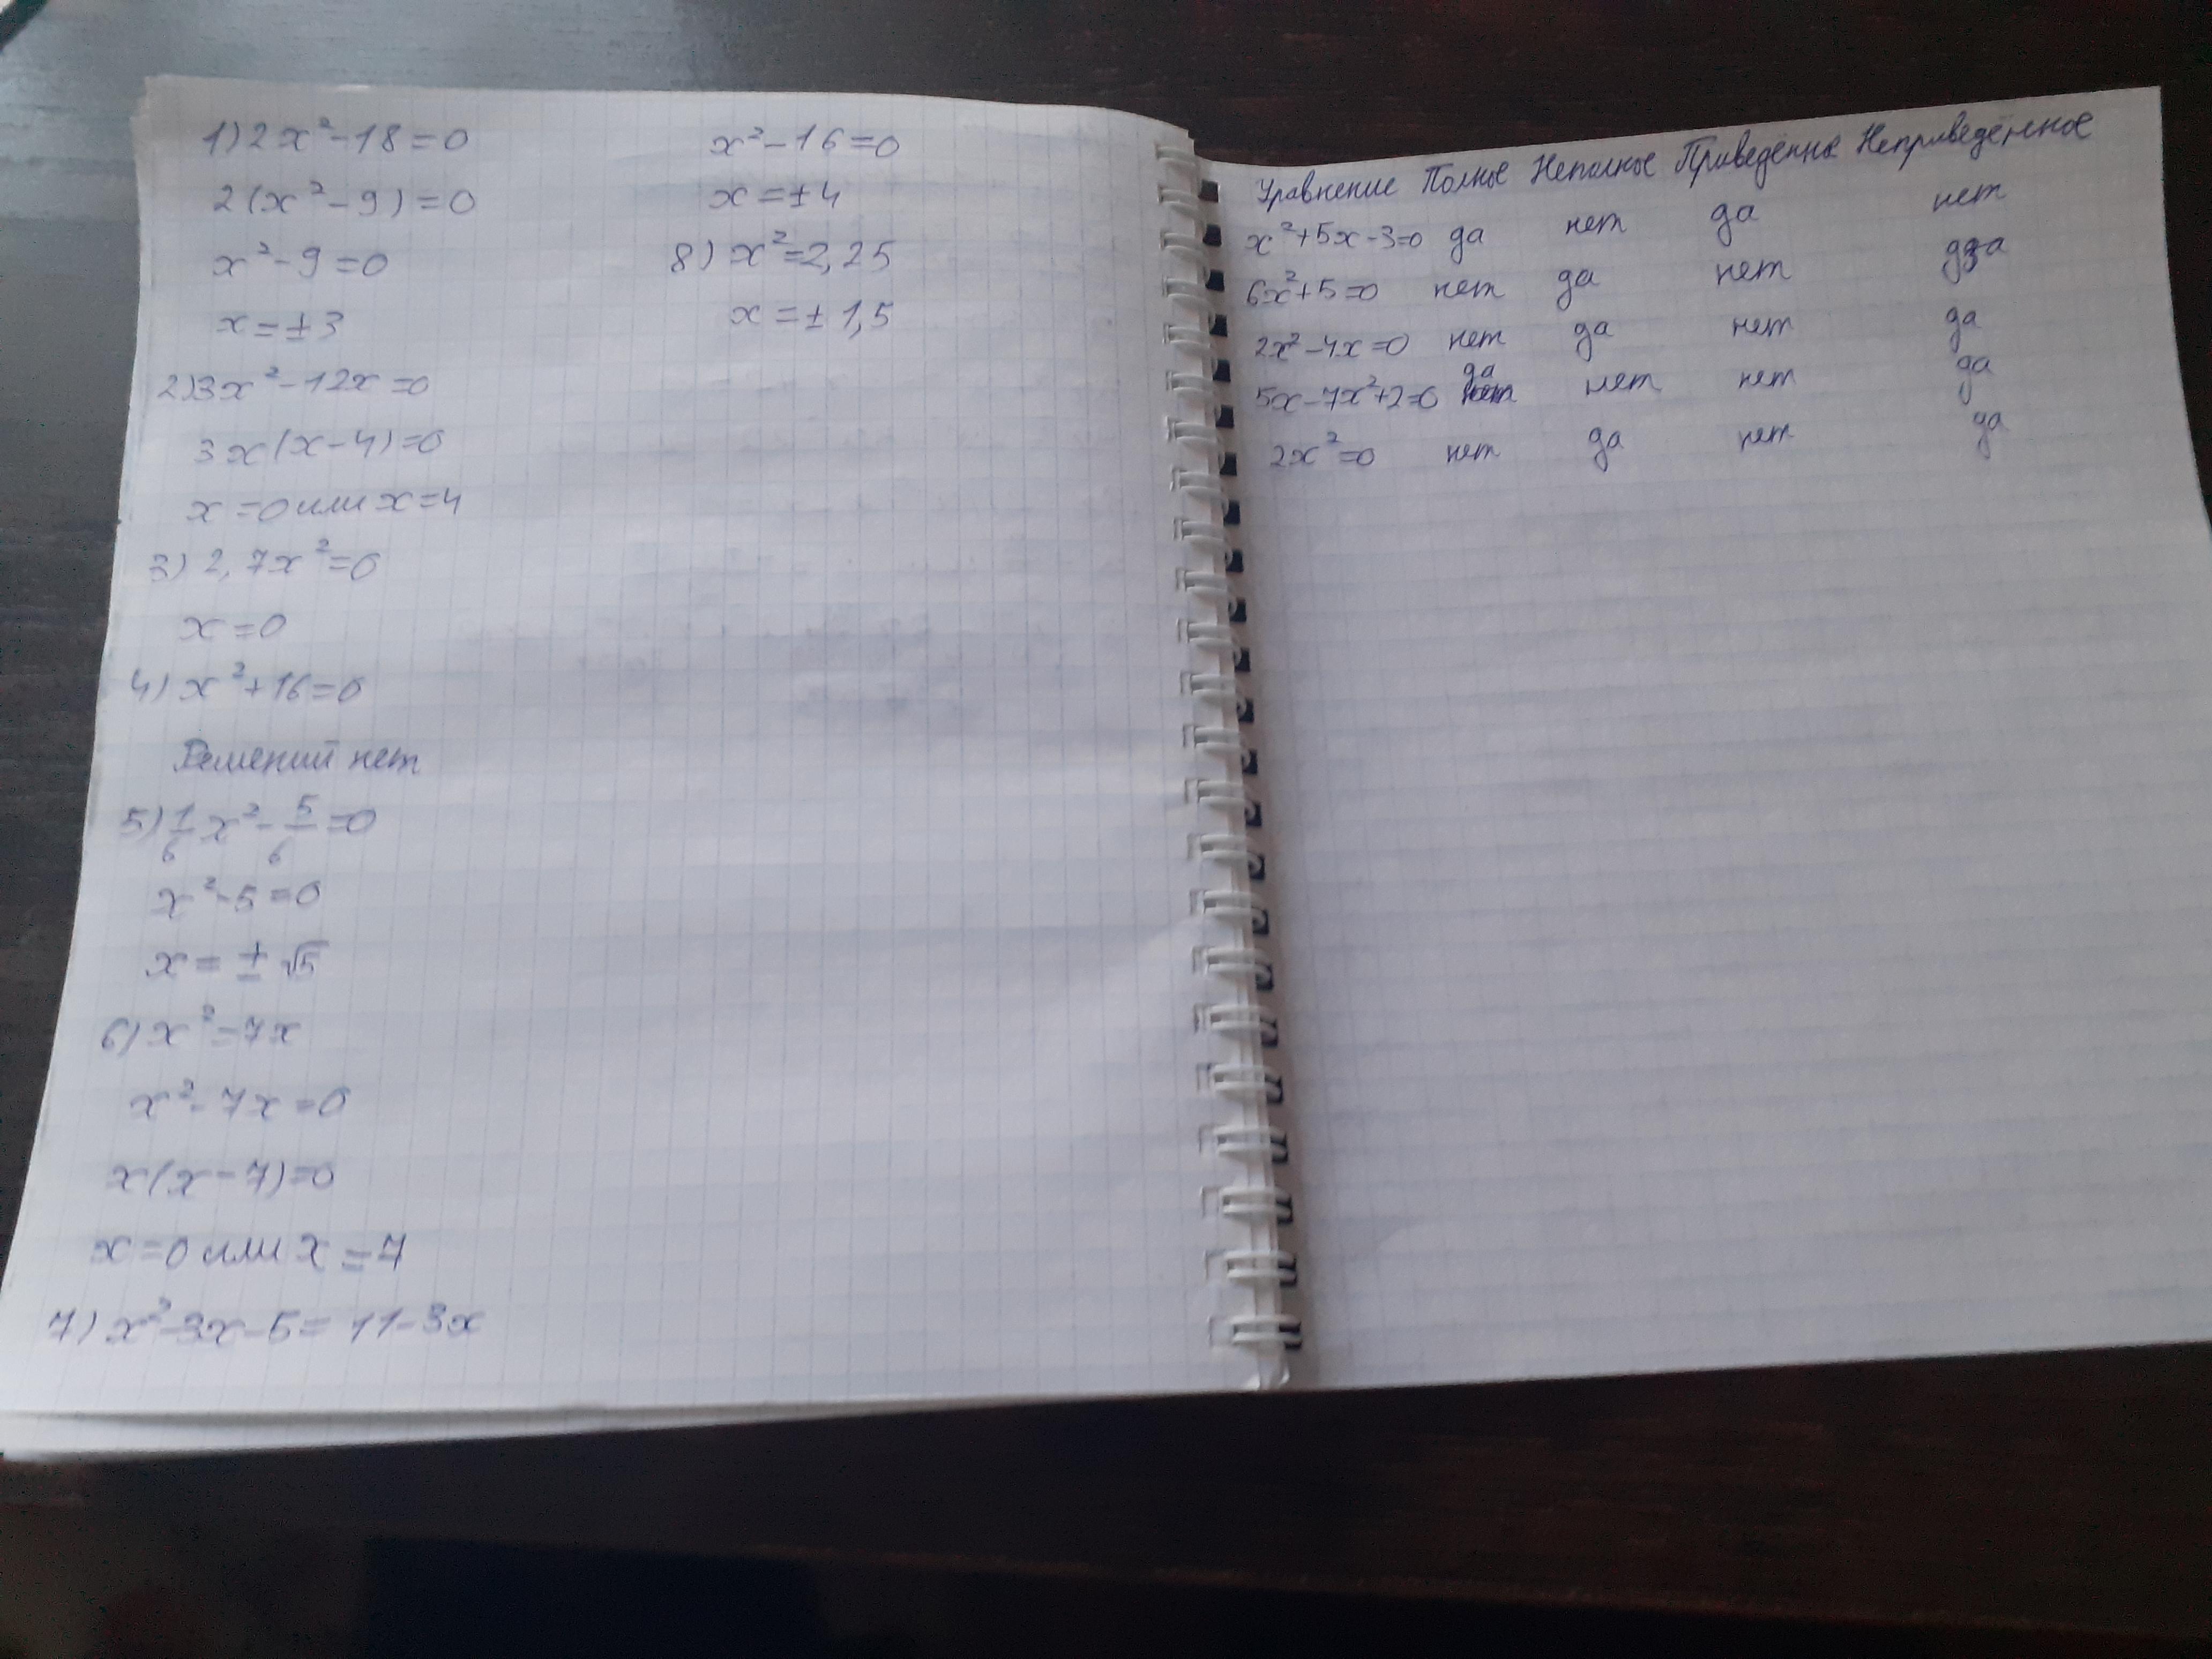 1) 2x²-18=0
2(x²-9)=0
x²-9=0
x=±3
2) 3x²-12x=0
3x(x-4)=0
x=0 или x=4
3) 2,7x²=0
x=0
4) x²+16=0
Решений нет
5) 1/6 x² - 5/6 =0
x²-5=0
x=±√5
6) x²=7x
x²-7x=0
x(x-7)=0
x=0 или x=7
7) x²-3x-5=11-3x
x²-16=0
x=±4
8) x²=2,25
x=±1,5
Уравнение Полное Неполное Приведённое Неприведённое
x²+5x-3=0 да нет да нет
6x²+5=0 нет да нет да
2x²-4x=0 нет да нет да
5x-7x²+2=0 да нет нет да
2x²=0 нет да нет да